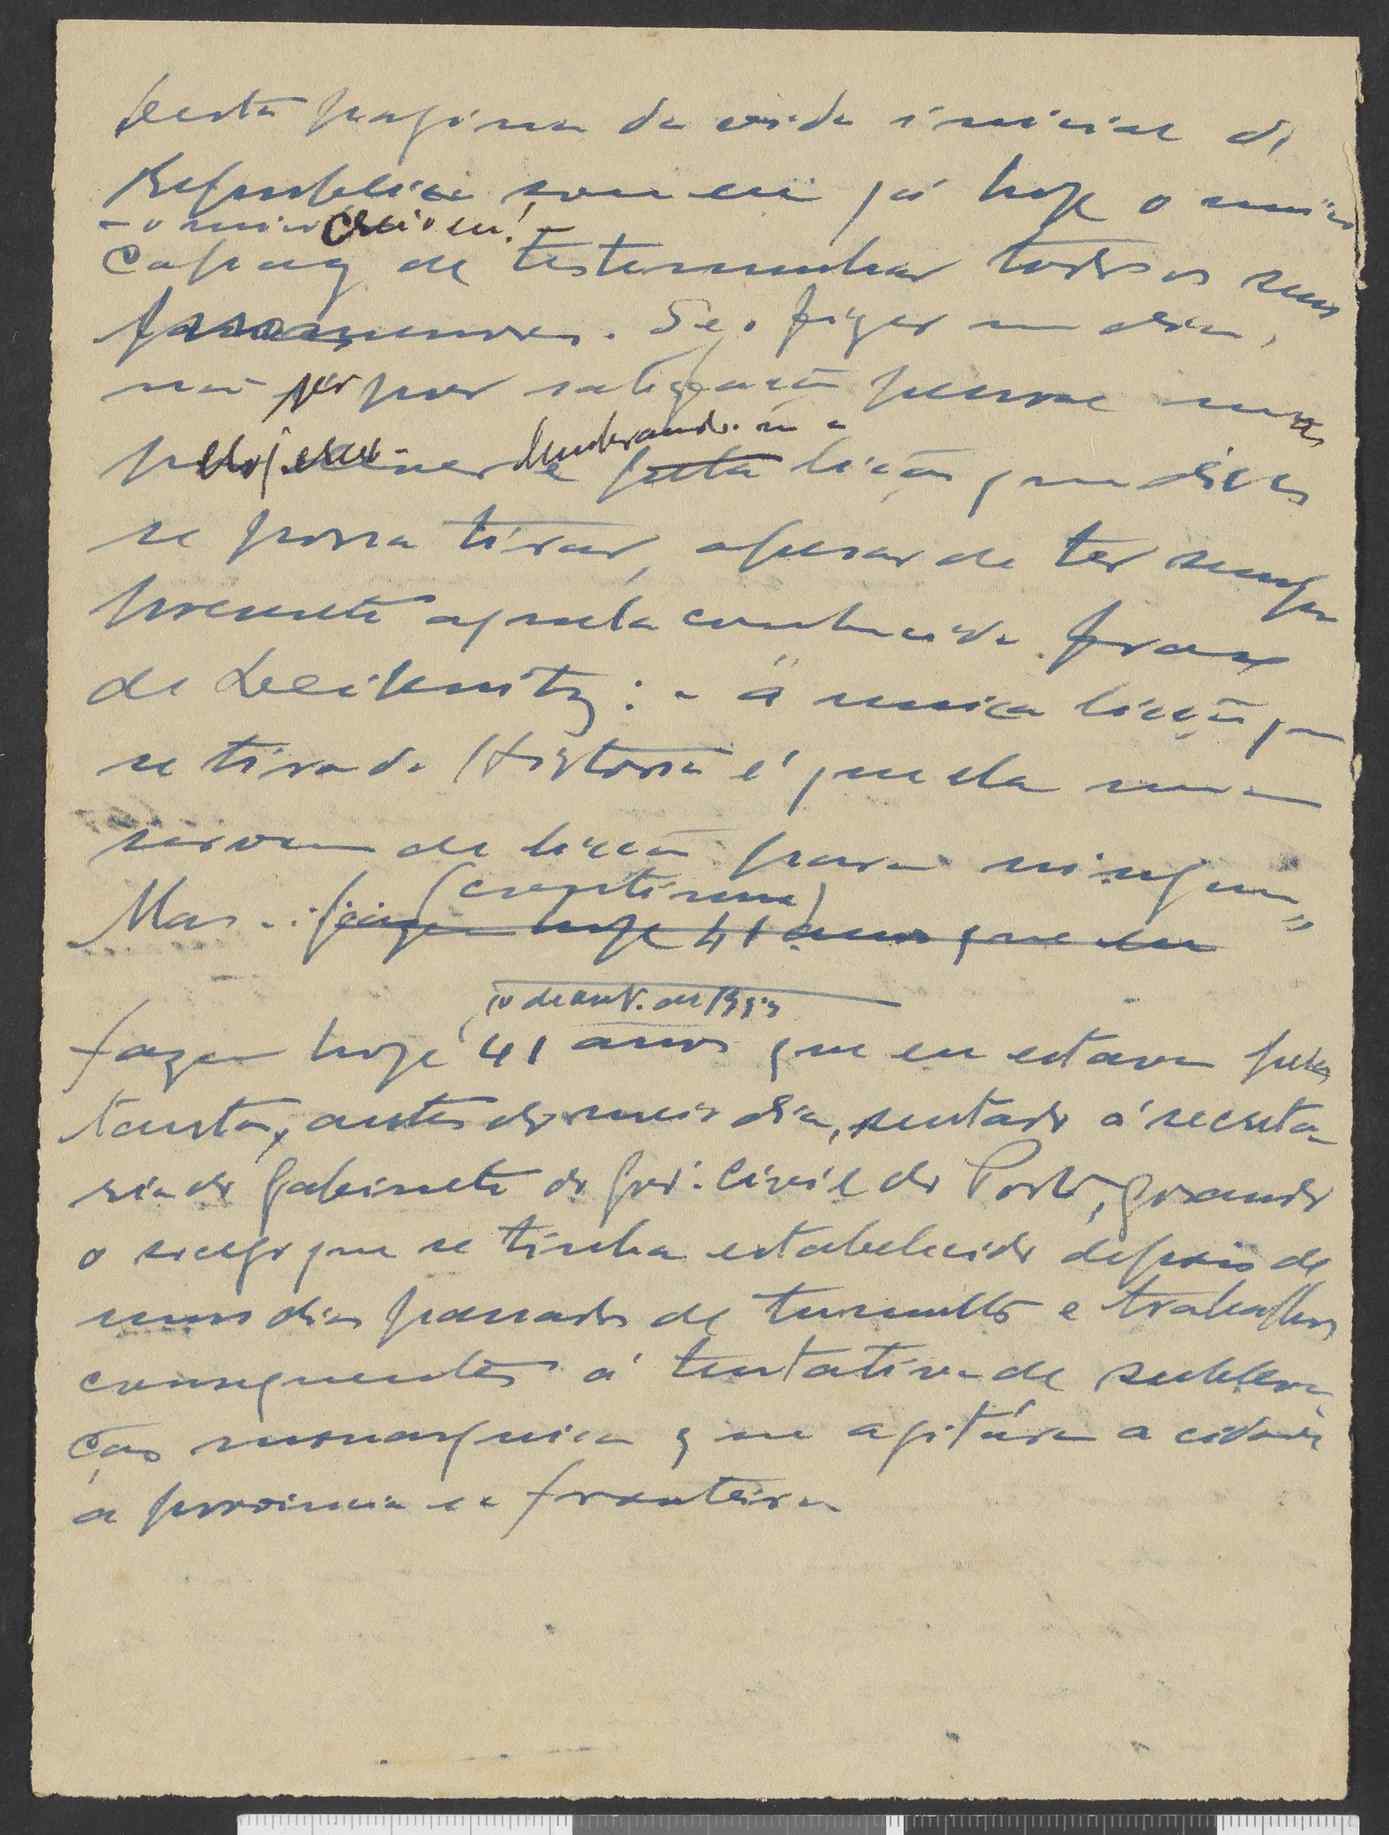 desta pagina da vida inicial da
Republica sou eu já hoje o unico
- o unico creio eu! -
capaz de testemunhar todos os seus
pormenores. Se o fizer um dia,
não ser por satisfação pessoal mas
pelo
lembrando-me a
lição que dela
se possa tirar, apesar de ter sempre
presente aquela conhecida frase
de Leibnitz: - a unica lição que
se tira da Historia é que ela nunca
serviu de lição para ninguem"
(continua)
Mas... fazem hoje 41 anos que eu
10 de out. de
Fazem hoje 41 anos que eu estava
antes do meio dia, sentado á secreta-
ria do gabinete do gov. civil do Porto, gosando
o socego que se tinha estabelecido depois de
uns dias passados de tumulto e trabalhos
consequentes á tentativa de subleva-
ção monarquica que agitára a cidade
a provincia e a fronteira